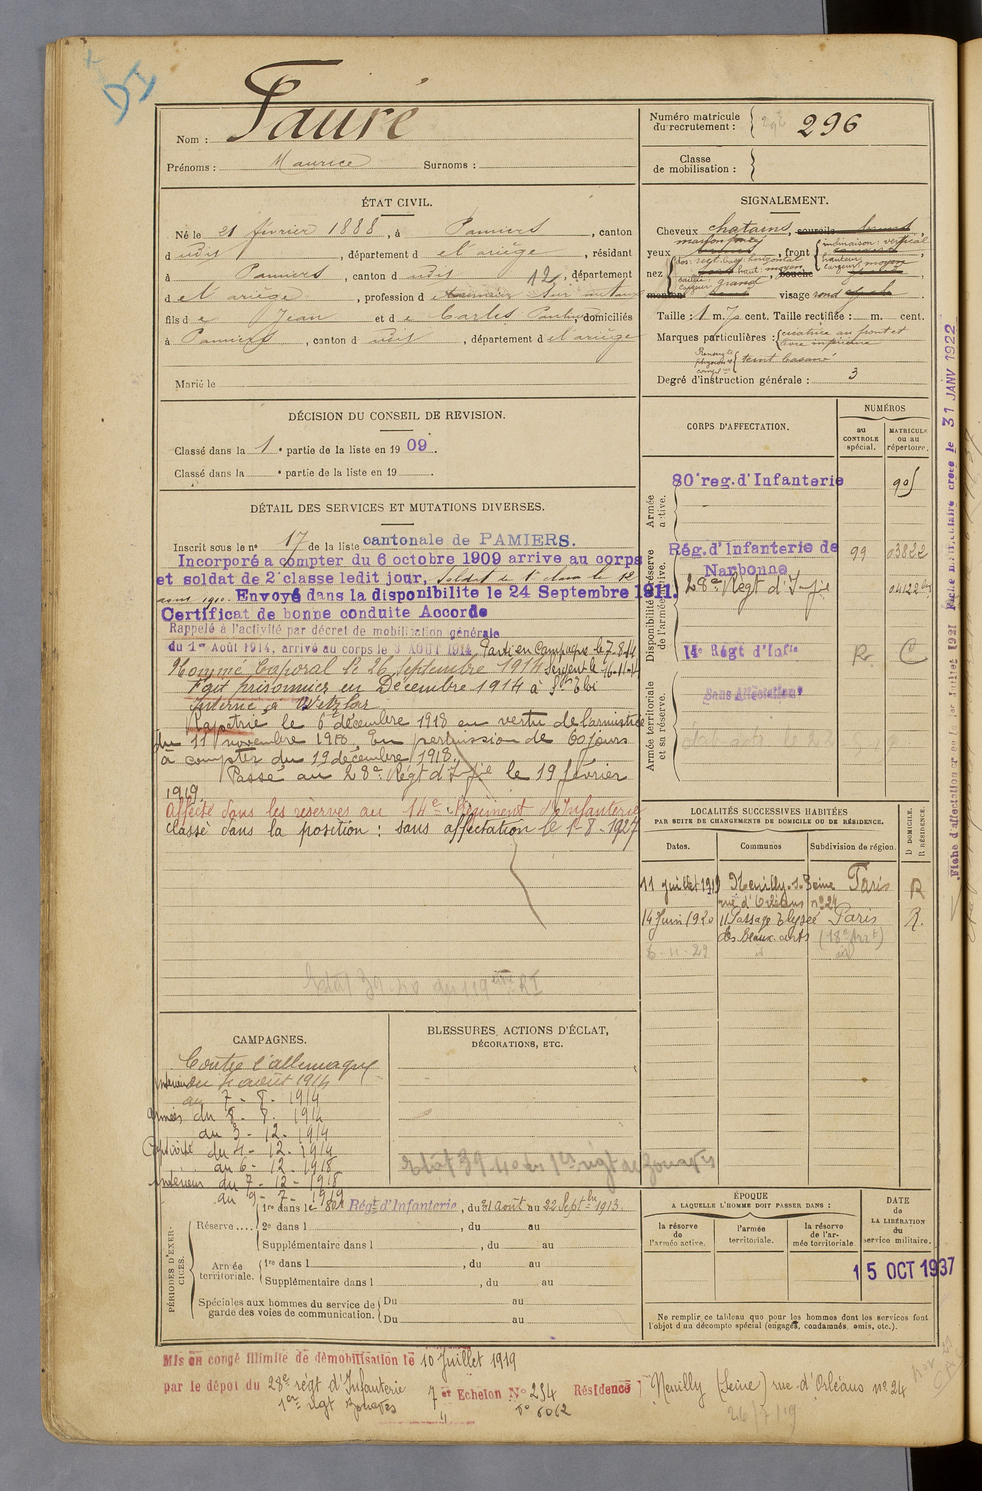 Nom : Fauré
Prénoms : Maurice Surnoms :
Numéro matricule du recrutement : 296
Classe de mobilisation :
ÉTAT CIVIL.
Né le 21 février 1888, à Pamiers, canton
dudit, département de l'ariège, résidant
à Pamiers, canton dudit, département
de l'ariège, profession de
fils de Jean et de Carles, domiciliés
à Pamiers, canton dudit, département de l'ariège
Marié le
SIGNALEMENT.
Cheveux chatains, sourcils
yeux marron foncé, front inclinaison : vertical
hauteur largeur moyen
nez dos : rect. base : horizontal
haut : moyen
saillie largeur grand
menton visage rond
Taille : 1 m. 70 cent. Taille rectifiée : m. cent.
Marques particulières : cicatrice au front et
lèvre inférieure
teint basané
Degré d'instruction générale : 3
DÉCISION DU CONSEIL DE REVISION.
Classé dans la 1e partie de la liste en 1909.
Classé dans la e partie de la liste en 19
DÉTAIL DES SERVICES ET MUTATIONS DIVERSES.
Inscrit sous le n° 17 de la liste cantonale de PAMIERS.
Incorporé a compter du 6 octobre 1909 arrive au corps
et soldat de 2e classe ledit jour, soldat de 1e classe le 12
1910. Envoyé dans la disponibilite le 24 Septembre 1911.
Certificat de bonne conduite Accordé
Rappelé à l'activité par décret de mobilisation générale
du 1er Août 1914, arrivé au corps le 3 AOUT 1914. Parti en Campagne le 7-8-14
Nommé Caporal le 26 septembre 1914 Sergent le 16-11-14
Fait prisonnier en Décembre 1914 à St Eloi
Interné à Wetzlar
Rapatrié le 6 décembre 1918 en vertu de l'armistice
du 11 novembre 1918. En permission de 60 jours
à compter du 19 décembre 1918.
Passé au 28e Régt d'Infie le 19 février
1919
Affecté dans les réserves au 14e Régiment d'Infanterie
classé dans la position : sans affectation le 1-8-1927
CORPS D'AFFECTATION.
NUMÉROS
au CONTROLE spécial.
MATRICULE ou au répertoire.
Armée active.
80e reg. d'Infanterie 905
Disponibilité et réserve de l'armée active.
Rég. d'Infanterie de Narbonne 99 03822
28e Régt d'Infie
14e Régt d'Infie R C
Armée territoriale et sa réserve.
Sans Affectation
LOCALITÉS SUCCESSIVES HABITÉES
PAR SUITE DE CHANGEMENTS DE DOMICILE OU DE RÉSIDENCE.
Dates. Communes Subdivision de région. D DOMICILE R RÉSIDENCE.
11 juillet 1919 Neuilly s. Seine Paris R
rue d'Orléans n° 24
14 Juin 1920 11 Passage Elysée Paris R.
des Beaux arts (18e Arrt)
6-11-29 id id
Etat 39-40 du 119e RI
CAMPAGNES.
Contre l'allemagne
Intérieur du 4 août 1914
au 7 - 8 - 1914
Armées du 8 - 8 - 1914
au 3 - 12 - 1914
Captivité du 4 - 12 - 1914
au 6 - 12 - 1918
Intérieur du 7 - 12 - 1918
au 9 - 7 - 1919
BLESSURES, ACTIONS D'ÉCLAT,
DÉCORATIONS, ETC.
Etat 39-40 du 1er régt de Zouaves
PÉRIODES D'EXERCICES.
Réserve .... 1re dans le 80e Régt d'Infanterie, du 31 août au 22 Septbre 1913.
2e dans l , du au
Supplémentaire dans l , du au
Armée territoriale. 1re dans l , du au
Supplémentaire dans l , du au
Spéciales aux hommes du service de garde des voies de communication. Du au
Du au
ÉPOQUE
A LAQUELLE L'HOMME DOIT PASSER DANS :
la réserve de l'armée active.
l'armée territoriale.
la réserve de l'armée territoriale.
DATE DE LA LIBÉRATION du service militaire.
15 OCT 1937
Ne remplir ce tableau que pour les hommes dont les services font
l'objet d'un décompte spécial (engagés, condamnés, omis, etc.).
Mis en congé illimité de démobilisation le 10 Juillet 1919
par le dépot du 28e régt d'Infanterie 7e Echelon N° 254 Résidence Neuilly (Seine) rue d'Orléans n° 24
1er régt Zouaves n° 6062
26/7/19
Fiche d'affectation crée le 31 JANV 1922